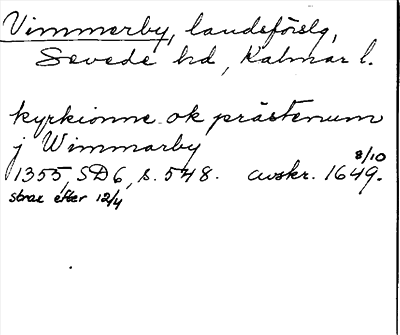 Vimmerby, landsförslg,
Sevede hd, Kalmar l.
kyrkionne ok prästenum
j Wimmarby
8/10
1355, SD6, s. 548. avskr. 1649.
strax efter 12/4